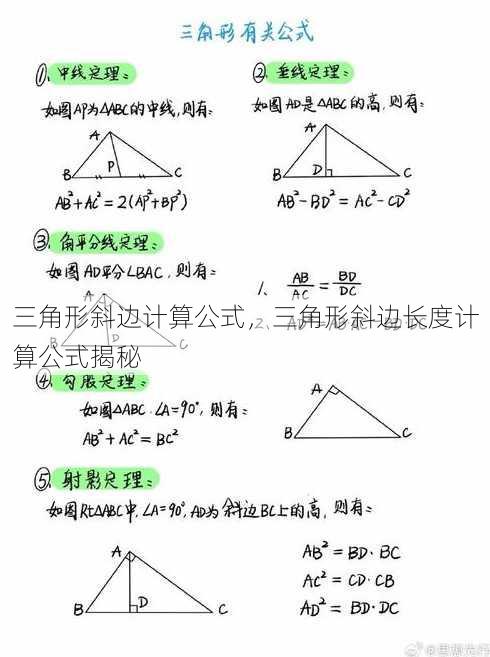 三角形有关公式
①、中线定理：
如图AP为△ABC的中线,则有：
A
B
P
C
AB²+AC²=2(AP²+BP²)
②、垂线定理：
如图AD是△ABC的高,则有：
A
B
D
C
AB²-BD²=AC²-CD²
③、角平分线定理：
如图AD平分∠BAC,则有：
A
1、AB/AC=BD/DC
三角形斜边计算公式，三角形斜边长度计
算公式揭秘
④、勾股定理：
如图△ABC.∠A=90°,则有：
AB²+AC²=BC²
A
B
C
⑤、射影定理：
如图Rt△ABC中,∠A=90°,AD为斜边BC上的高,则有：
A
B
D
C
AB²=BD·BC
AC²=CD·CB
AD²=BD·DC